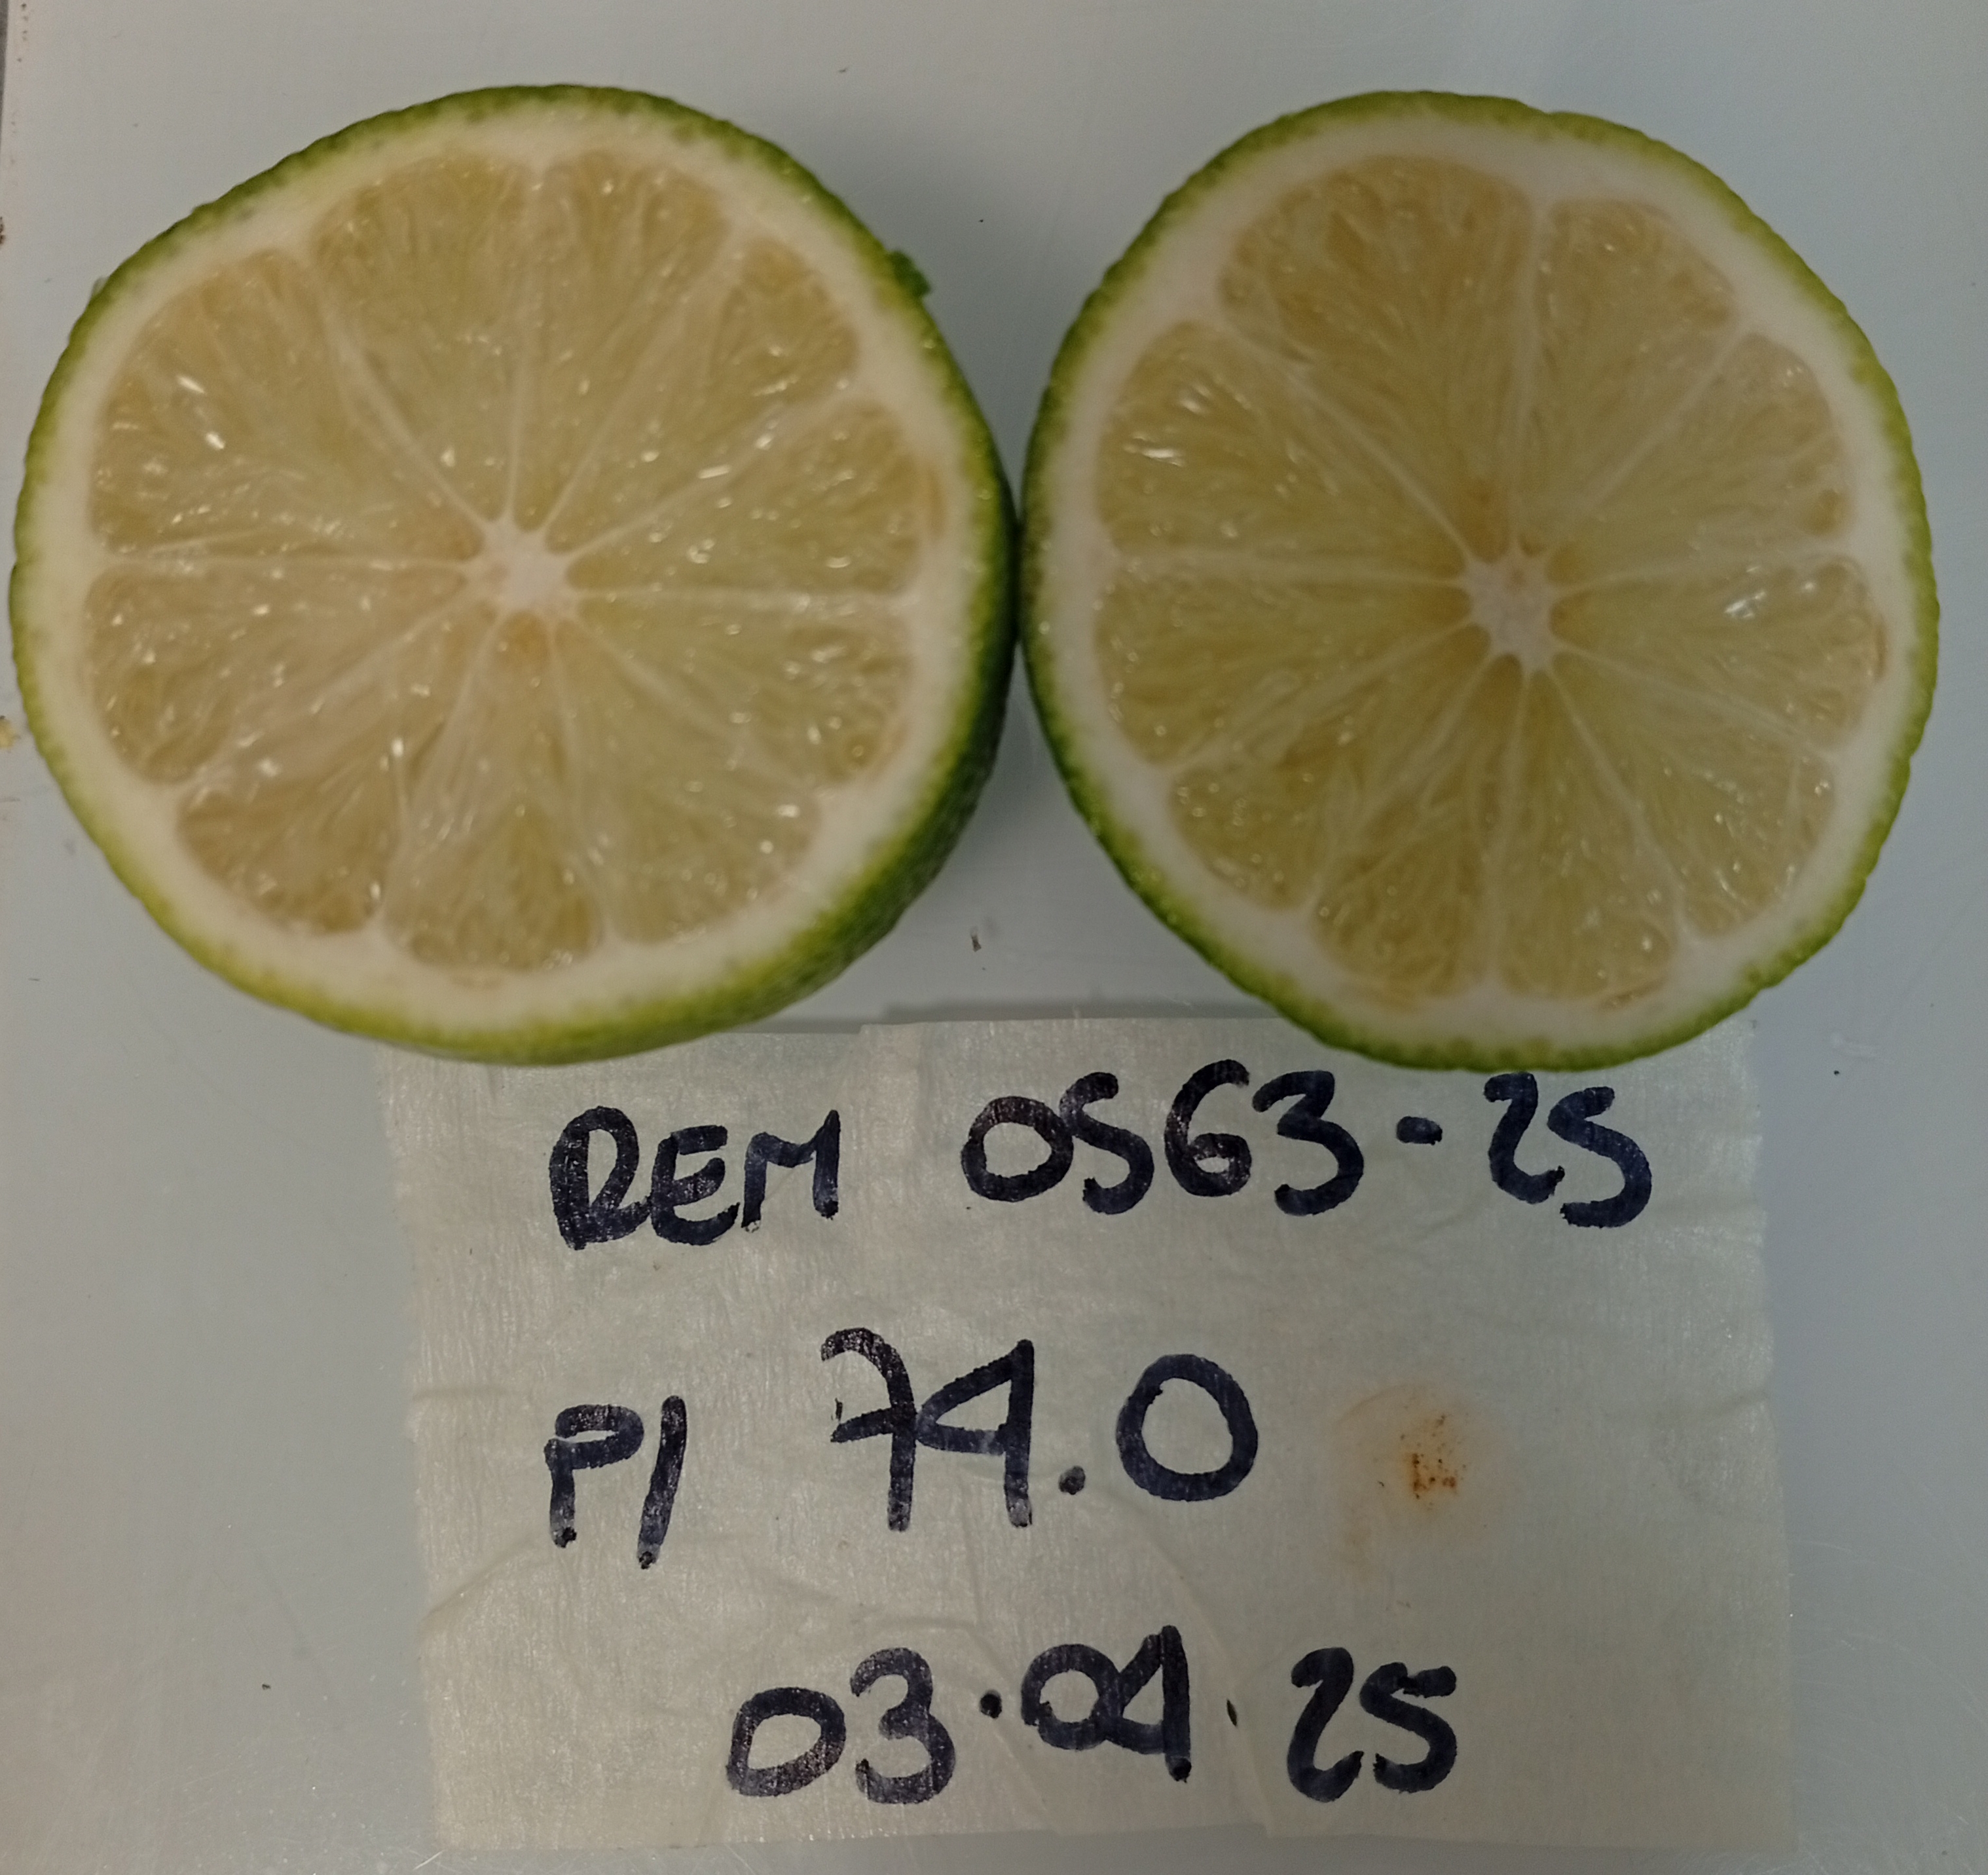 REM 0563-25
P/ 74.0
03.04.25